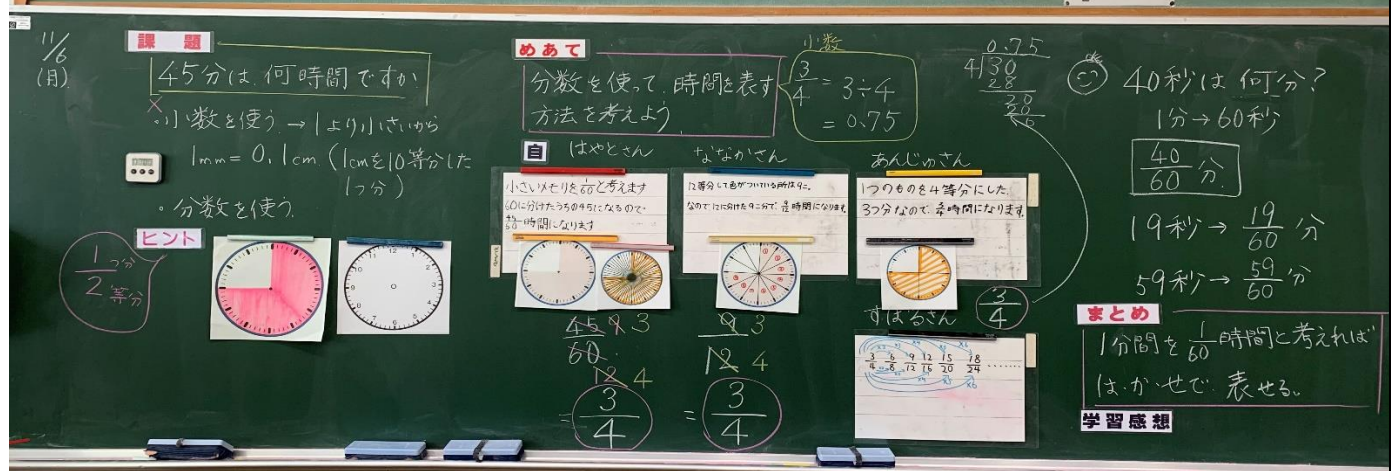 11/6
(月)
課題
45分は、何時間ですか
×
・小数を使う → 1より小さいから
1mm = 0.1cm (1cmを10等分した
1つ分)
・分数を使う
ヒント
1/2 つ分 等分
めあて
分数を使って、時間を表す
方法を考えよう
小数
3/4 = 3÷4
= 0.75
0.75
4)30
28
20
20
0
自
はやとさん
小さいメモリを1/60と考えます
60に分けたうちの45になるので、
45/60時間になります
45 9 3
60
12 4
= 3/4
ななかさん
12等分して色がついている所は9こ。
なので12に分けた9こ分で、9/12時間になります。
① ② ③ ④ ⑤ ⑥ ⑦ ⑧ ⑨
9 3
12 4
= 3/4
あんじゅさん
1つのものを4等分にした
3つ分なので、3/4時間になります。
3/4
すばるさん
3/4 6/8 9/12 12/16 15/20 18/24 ........
40秒は何分?
1分→60秒
40/60 分
19秒→ 19/60 分
59秒→ 59/60 分
まとめ
1分間を1/60時間と考えれば
は・か・せで、表せる。
学習感想